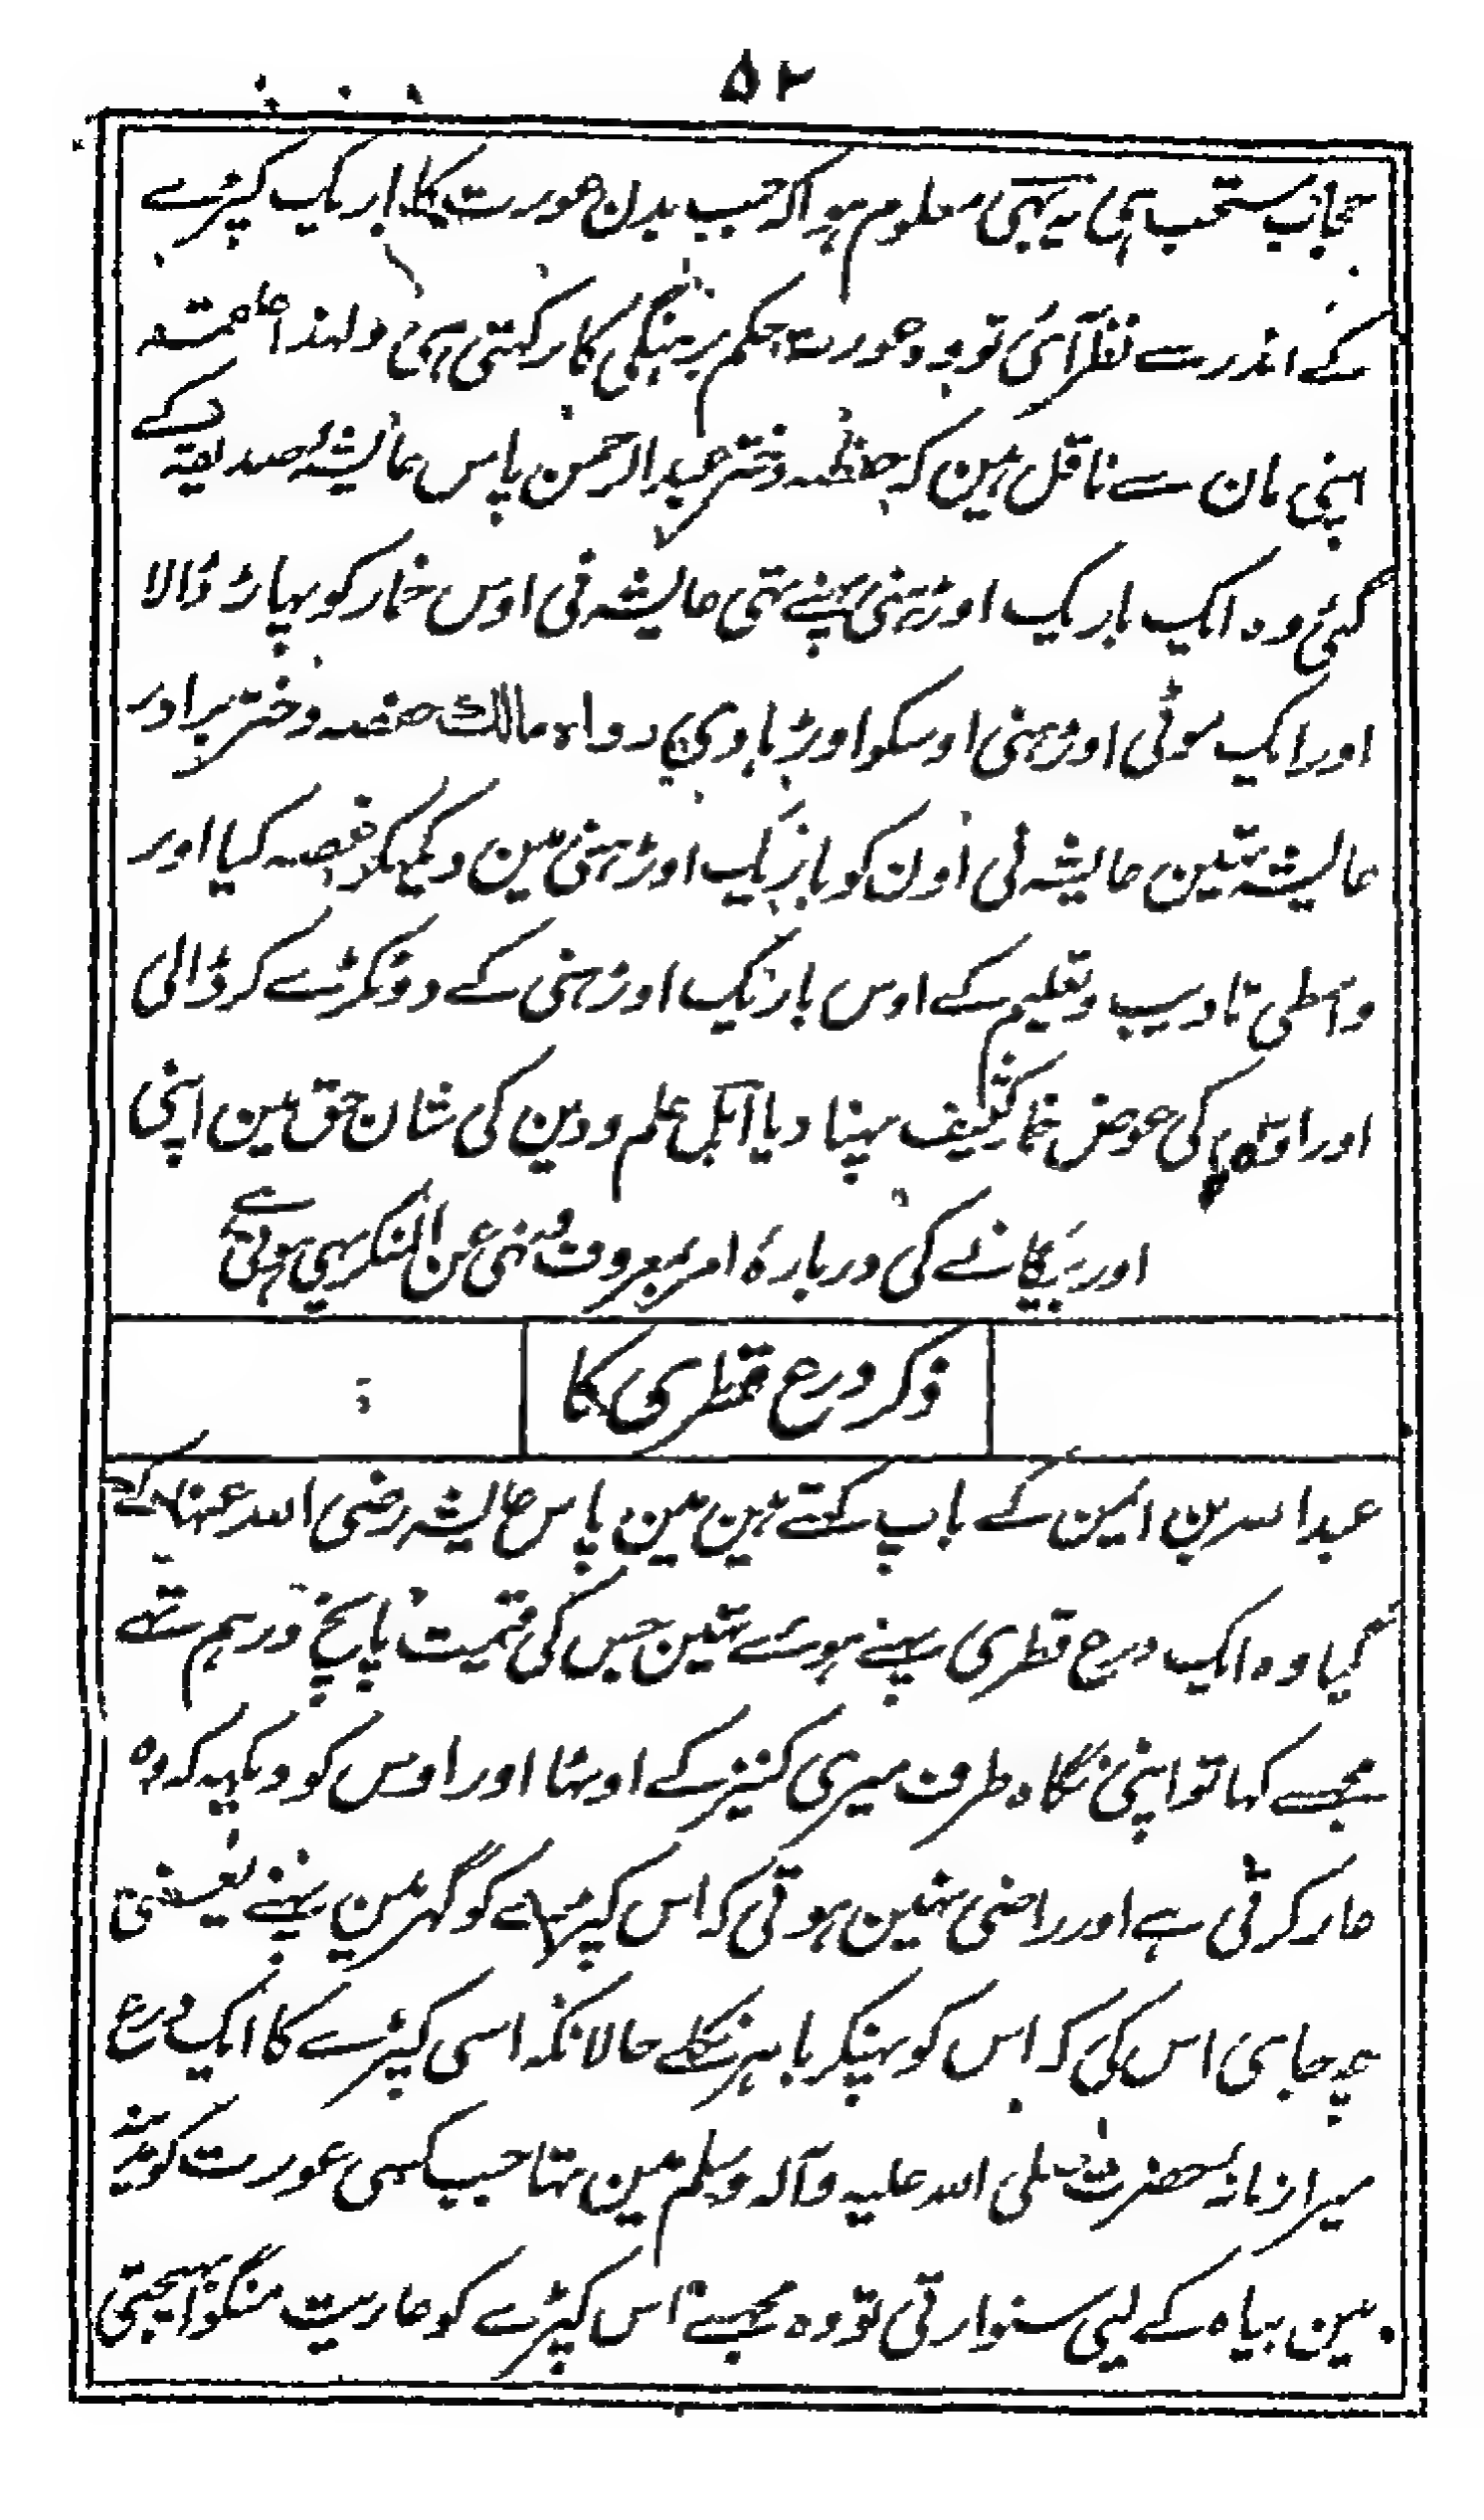 ۵۲
حجاب مستحب ہی یہ بھی معلوم ہوا کہ جب بدن عورت کا باریک کپڑے
کے اندر سے نظر آئی تو وہ عورت حکم برہنگی کا رکہتی ہی ولہذا علقمہ
اپنی مان سے ناقل ہین کہ حفصہ دختر عبدالرحمن پاس عایشہ صدیقہ کے
گئی وہ ایک باریک اوڑہنی پہنے تہی عایشہ نی اوس خمار کو پہاڑ ڈالا
اور ایک موٹی اوڑہنی اوسکو اوڑہا دی رواہ مالک حفصہ دختر برادر
عایشہ تہین عایشہ نی اون کو باریک اوڑہنی مین دیکہکر غصہ کیا اور
واسطی تادیب و تعلیم کے اوس باریک اوڑہنی کے دو ٹکڑے کر ڈالی
اور اوس کی عوض خمار کثیف پہنا دیا اہل علم و دین کی شان حق مین اپنی
اور بیگانے کی دربارہ امر بمعروف و نہی عن المنکر یہی ہوتی ہے
ذکر درع قطری کا
عبد اللہ بن ایمن کے باپ کہتے ہین مین پاس عایشہ رضی اللہ عنہا کے
گیا وہ ایک درع قطری پہنے ہوئے تہین جس کی قیمت پانچ درہم تہے
مجہسے کہا تو اپنی نگاہ طرف میری کنیز کے اوٹہا اور اوس کو دیکہہ کہ وہ
عار کرتی ہے اور راضی نہین ہوتی کہ اس کپڑے کو گہر مین پہنے یعنی
چہ جای اس کی کہ اس کو پہنکر باہر نکلے حالانکہ اسی کپڑے کا ایک درع
میرا زمانہ حضرت صلی اللہ علیہ وآلہ وسلم مین تہا جب کسی عورت کو مدینہ
مین بیاہ کے لیی سنوارتی تو وہ مجہسے اس کپڑے کو عاریت منگوا بہیجتی